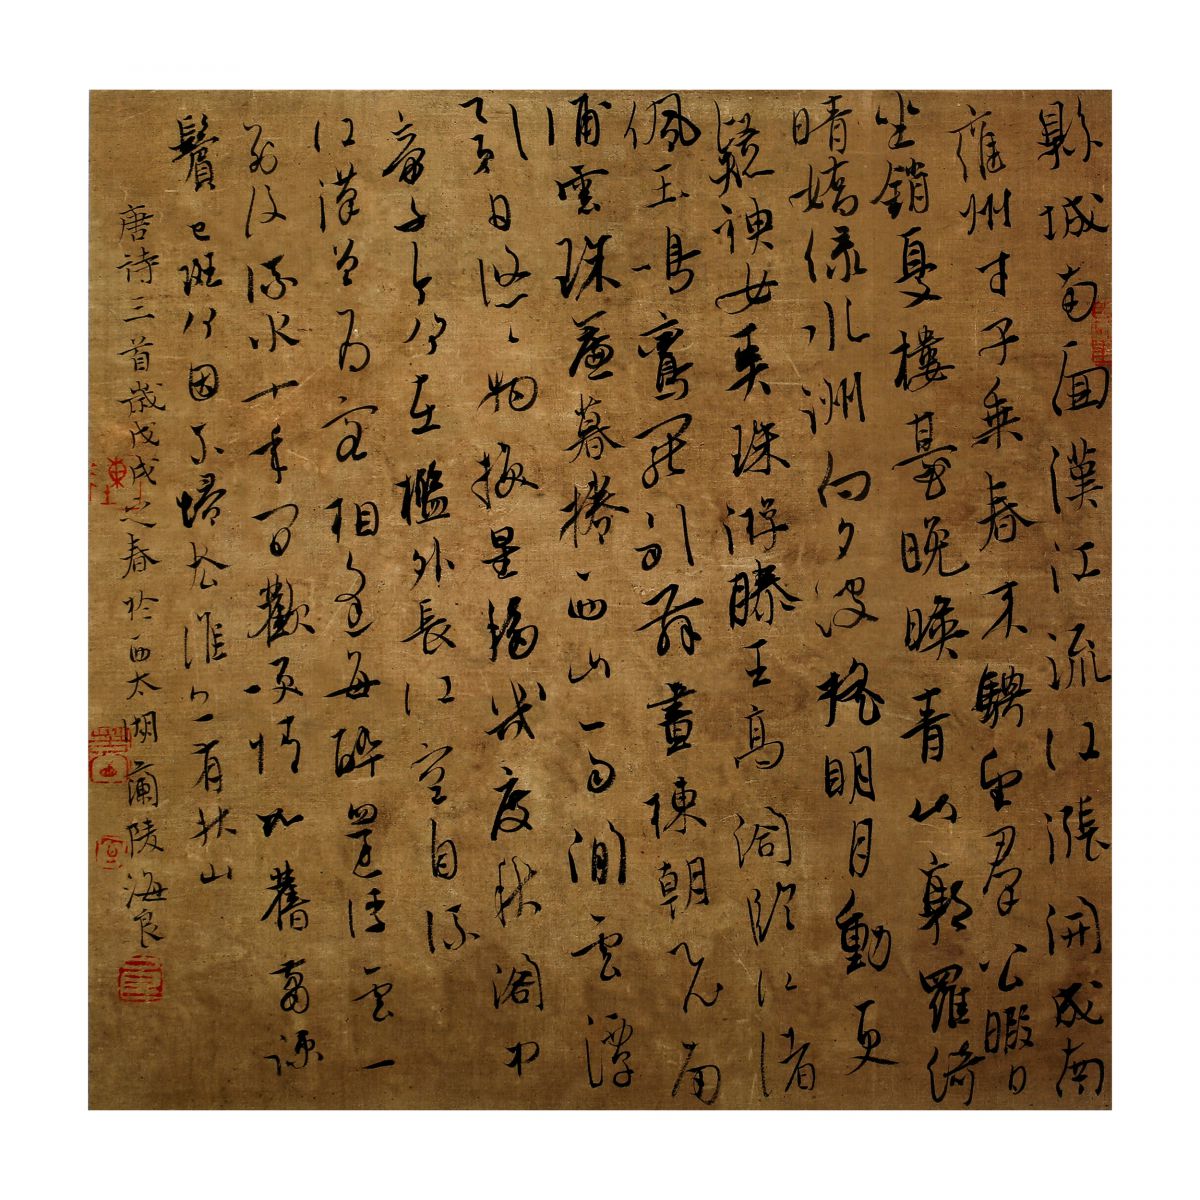 縣城南面漢江流江漲開成南
雍州才子乘春來騁望群公暇日
坐銷憂樓臺晚映青山郭羅綺
晴嬌綠水洲向夕波搖明月動更
疑神女弄珠游滕王高閣臨江渚
佩玉鳴鸞罷歌舞畫棟朝飛南
浦雲珠簾暮捲西山雨閒雲潭
影日悠悠物換星移幾度秋閣中
帝子今何在檻外長江空自流
江漢曾為客相逢每醉還浮雲一
別後流水十年間歡笑情如舊蕭疎
鬢已斑何因不歸去淮上有秋山
唐詩三首歲戊戌之春於西太湖蘭陵海良